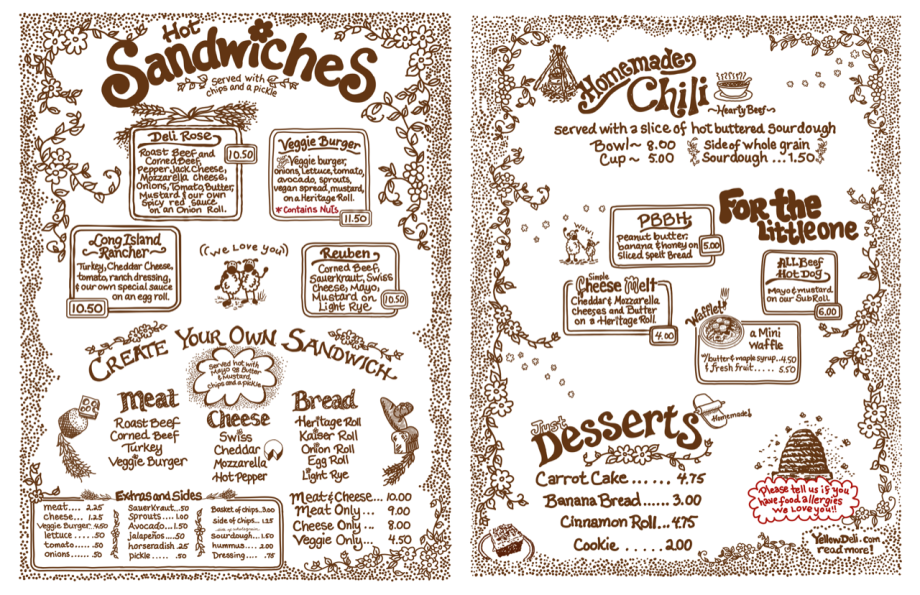 Hot
Sandwiches
Served with
chips and a pickle
Deli Rose
10.50
Roast Beef and
Corned Beef,
Pepper Jack Cheese,
Mozzarella cheese,
Onions, Tomato, Butter,
Mustard & our own
Spicy red sauce
on an Onion Roll.
Veggie Burger
Veggie burger,
onions, Lettuce, tomato,
avocado, sprouts,
vegan spread, mustard,
on a Heritage Roll.
*Contains Nuts
11.50
Long Island
~Rancher~
Turkey, Cheddar Cheese,
tomato, ranch dressing,
& our own special sauce
on an egg roll.
10.50
((We Love you))
Reuben
Corned Beef,
Sauerkraut, Swiss
Cheese, Mayo,
Mustard on
Light Rye
10.50
Create Your Own Sandwich
Served hot with
Mayo or Butter
& Mustard,
chips and a pickle
Meat
Roast Beef
Corned Beef
Turkey
Veggie Burger
Cheese
Swiss
Cheddar
Mozzarella
Hot Pepper
Bread
Heritage Roll
Kaiser Roll
Onion Roll
Egg Roll
Light Rye
Extras and Sides
meat.... 2.25
cheese... 1.25
Veggie Burger..4.50
lettuce ..... .50
tomato..... .50
onions..... .50
Sauerkraut...50
Sprouts.... 1.00
Avocado...1.50
jalapeños....50
horseradish .25
pickle ..... .50
Basket of chips..3.00
side of chips... 1.25
Sourdough...1.50
hummus..... 2.00
Dressing.... .75
Meat & Cheese... 10.00
Meat Only... 9.00
Cheese Only... 8.00
Veggie Only... 4.50
Homemade
Chili
~Hearty Beef~
served with a slice of hot buttered Sourdough
Bowl~ 8.00
Cup ~ 5.00
Side of whole grain
Sourdough ...1.50
For the
little one
PBBH
peanut butter,
banana & honey on
sliced Spelt Bread
5.00
ALL Beef
Hot Dog
Mayo & mustard
on our Sub Roll
6.00
Simple
Cheese Melt
Cheddar & Mozzarella
cheeses and Butter
on a Heritage Roll.
4.00
Wafflet
a Mini
Waffle
w/butter & maple syrup...4.50
& fresh fruit..... 5.50
Just
Desserts
Homemade!
Carrot Cake...... 4.75
Banana Bread......3.00
Cinnamon Roll...4.75
Cookie ..... 2.00
Please tell us if you
have food allergies
we Love you!!
YellowDeli.com
read more!